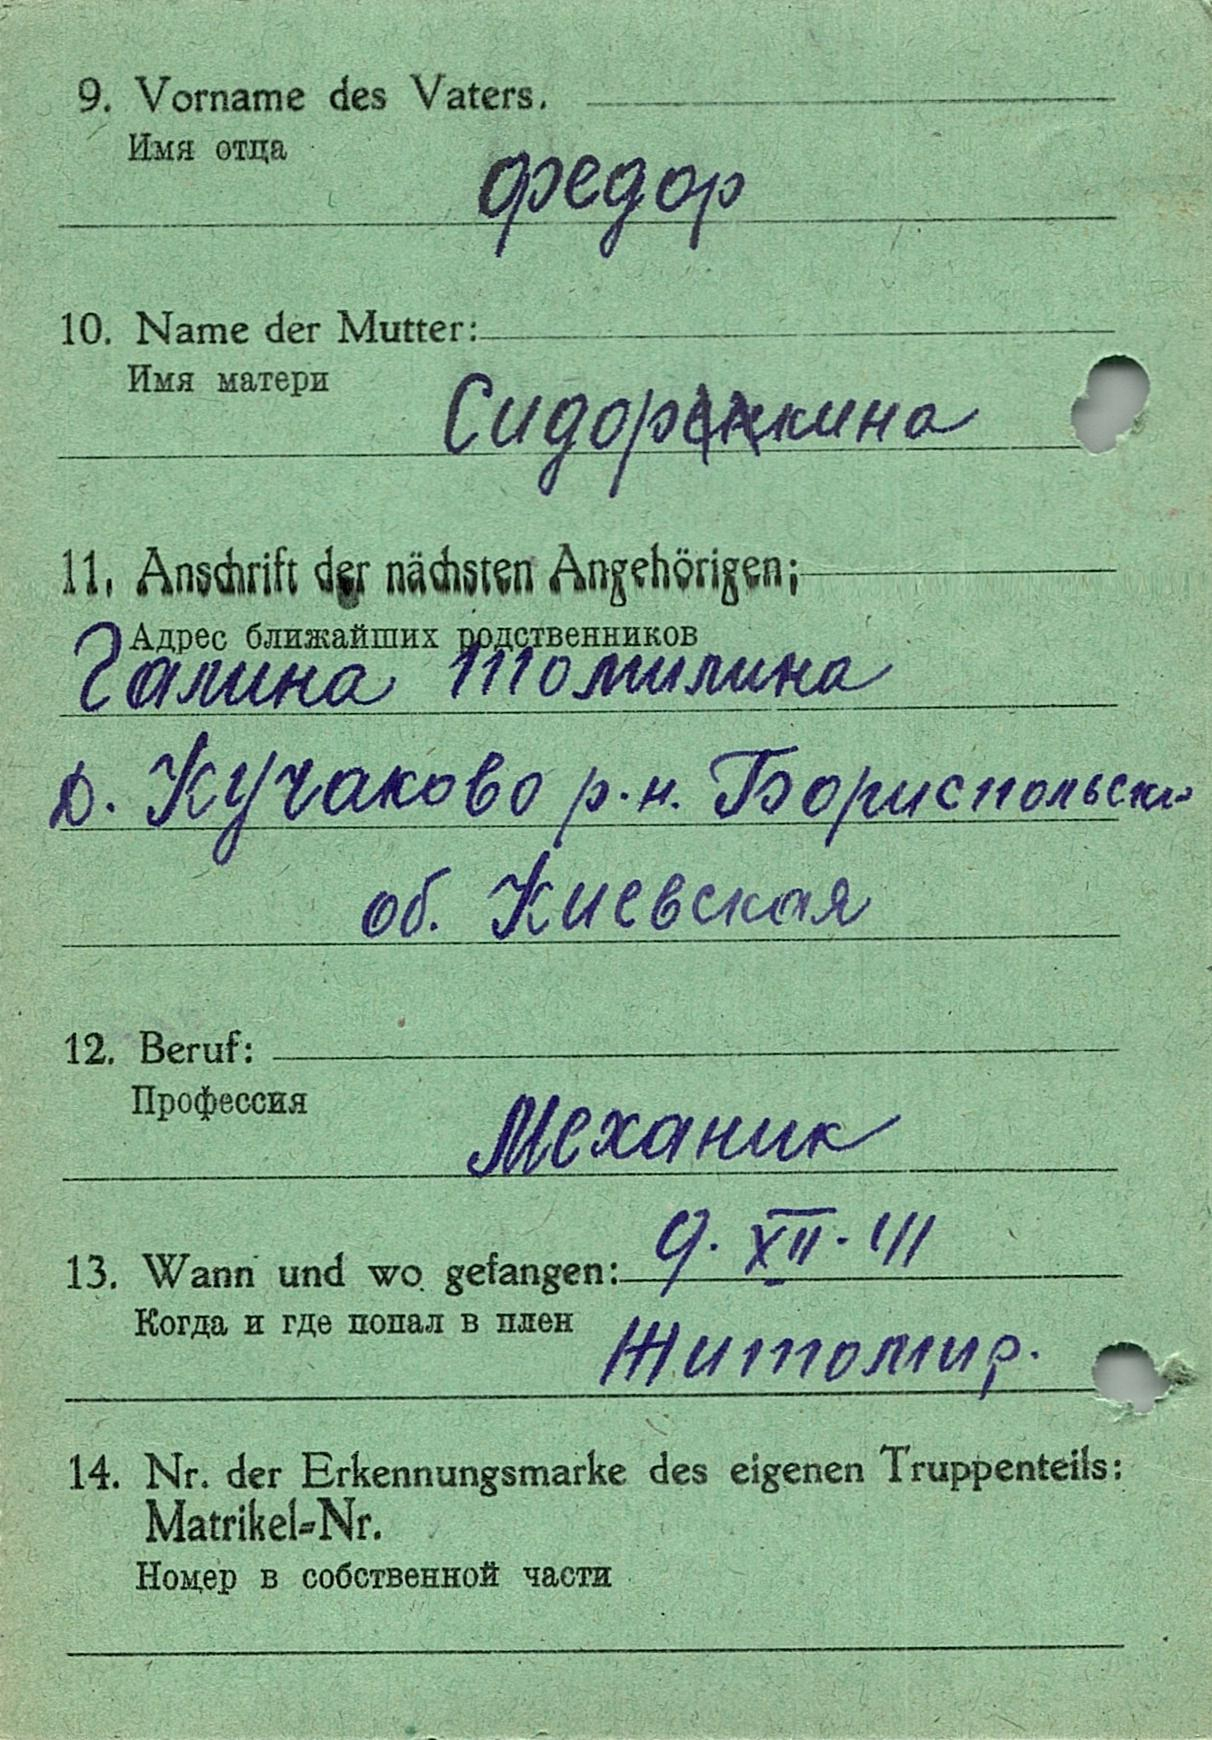 9. Vorname des Vaters.
Имя отца
Федор
10. Name der Mutter:
Имя матери
11. Anschrift der nächsten Angehörigen:
Адрес ближайших родственников
Галина Томилина
д. Кучаково р.н. Бориспольски
об. Киевская
12. Beruf:
Профессия
Механик
13. Wann und wo gefangen: 9. XII. 41
Когда и где попал в плен
Житомир.
14. Nr. der Erkennungsmarke des eigenen Truppenteils:
Matrikel-Nr.
Номер в собственной части